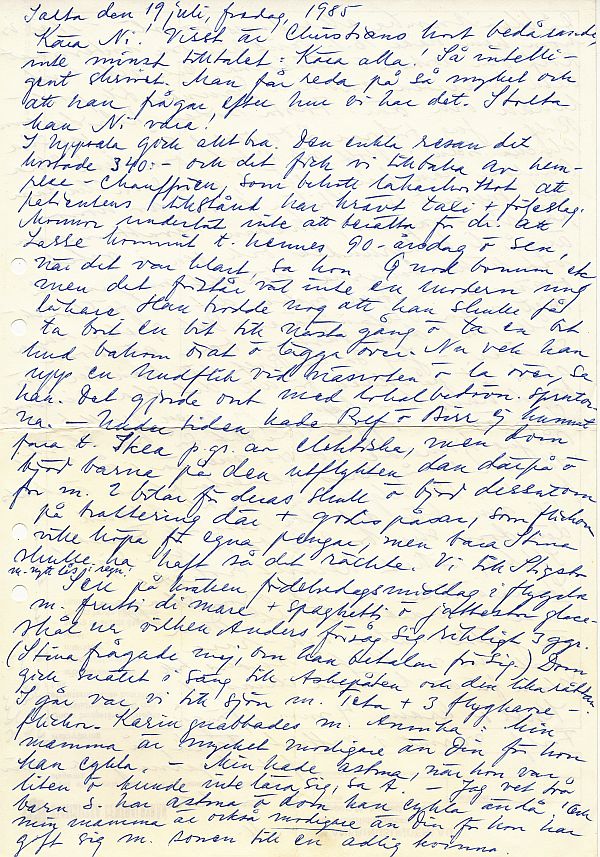 Salta den 19 juli, fredag, 1985
Kära Ni! Visst är Christians kort bedårande,
inte minst tilltalet: Kära alla! Så intelli-
gent skrivet. Man får reda på så mycket och
att han frågar, efter hur vi har det. Stolta
kan Ni vara!
I Uppsala gick allt bra. Den enkla resan det
kostade 340:- och det fick vi tillbaka av hem-
rese-chauffören, som behöll läkarkortet att
patientens tillstånd har krävt taxi + följeslag.
Mormor underlät inte att berätta för dr. att
Lasse kommit t. hennes 90-årsdag o sen,
när det var klart, sa hon Quod bonum etc
men det förstår väl inte en modern ung
läkare. Han trodde nog att han skulle få
ta bort en bit till nästa gång o ta en bit
hud bakom örat o lägga över. Nu vek han
upp en hudflik vid näsroten o la över, sa
han. Det gjorde ont med lokalbedövn. sprutor-
na. - Under tiden hade Rolf o Birr ej kunnat
fara t. Ikea p.gr. av elektriska, men dom
bjöd barna på den utflykten dan därpå o
for m. 2 bilar för deras skull o bjöd dessutom
på traktering där + godispåsar, som flickorna
ville köpa för egna pengar, men bara Stina
skulle ha haft så det räckte. Vi till
m. nytt lås i repr.
Sen på kvällen födelsedagsmiddag i flygeln
m. frutti di mare + spaghetti o jättestor glass-
skål ur vilken Anders försåg sig rikligt 3 ggr.
(Stina frågade mej, om han betalar för sig.) Dom
gick mätt i säng till Askepåten och den lilla
I går var vi till sjön m. Teta + 3 flygkarre-
flickor. Karin gnabbades m. Annika: Min
mamma är mycket modigare än Din för hon
kan cykla. - Min hade astma, när hon var
liten o kunde inte lära sig, sa A. - Jag vet två
barn S. har astma o dom kan cykla ändå. Och
min mamma är också modigare än din för hon har
gift sig m. sonen till en adlig kvinna.